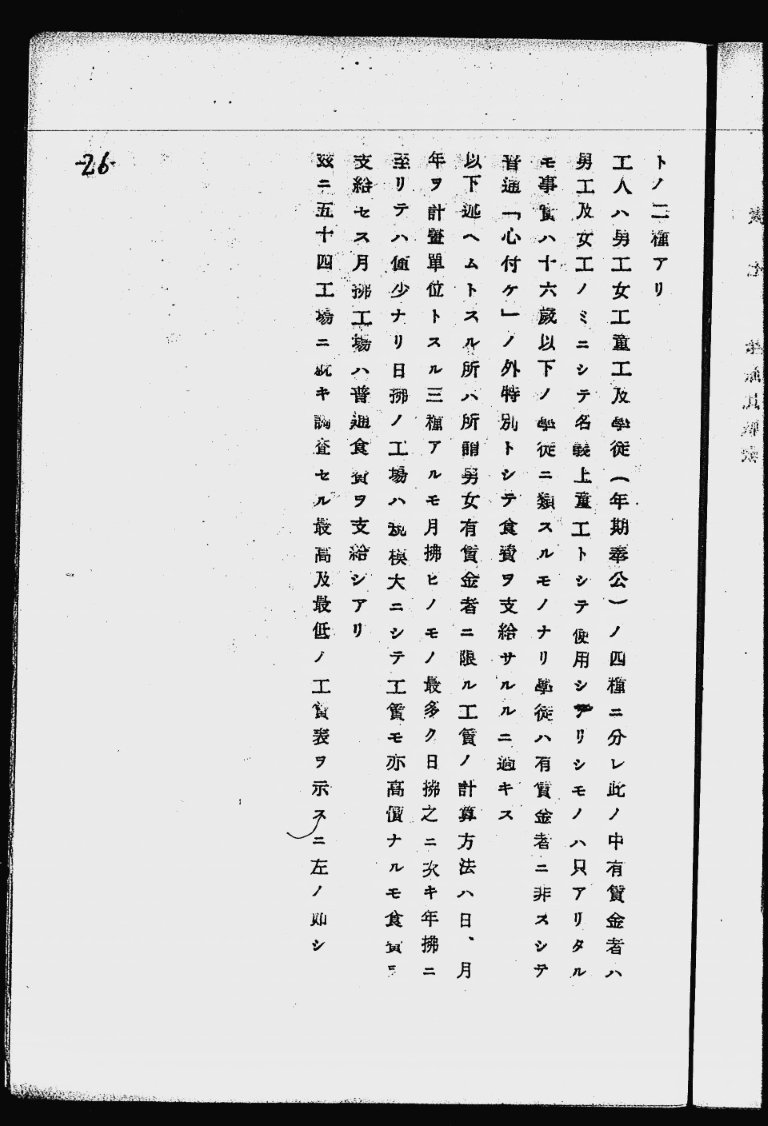 トノ二種アリ
工人ハ男工女工童工及學徒（年期奉公）ノ四種ニ分レ此ノ中有賃金者ハ
男工及女工ノミニシテ名義上童工トシテ使用シアリシモノハ只アリタル
モ事實ハ十六歲以下ノ學徒ニ類スルモノナリ學徒ハ有賃金者ニ非スシテ
普通「心付ケ」ノ外特別トシテ食費ヲ支給サルルニ過キス
以下述ヘムトスル所ハ所謂男女有賃金者ニ限ル工賃ノ計算方法ハ日、月
年ヲ計算單位トスル三種アルモ月拂ヒノモノ最多ク日拂之ニ次キ年拂ニ
至リテハ僅少ナリ日拂ノ工場ハ規模大ニシテ工賃モ亦高價ナルモ食費ヲ
支給セス月拂工場ハ普通食費ヲ支給シアリ
玆ニ五十四工場ニ就キ調査セル最高及最低ノ工賃表ヲ示スニ左ノ如シ
-26-